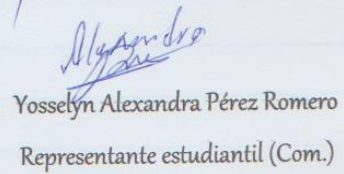 Alexandra
Yosselyn Alexandra Pérez Romero
Representante estudiantil (Com.)